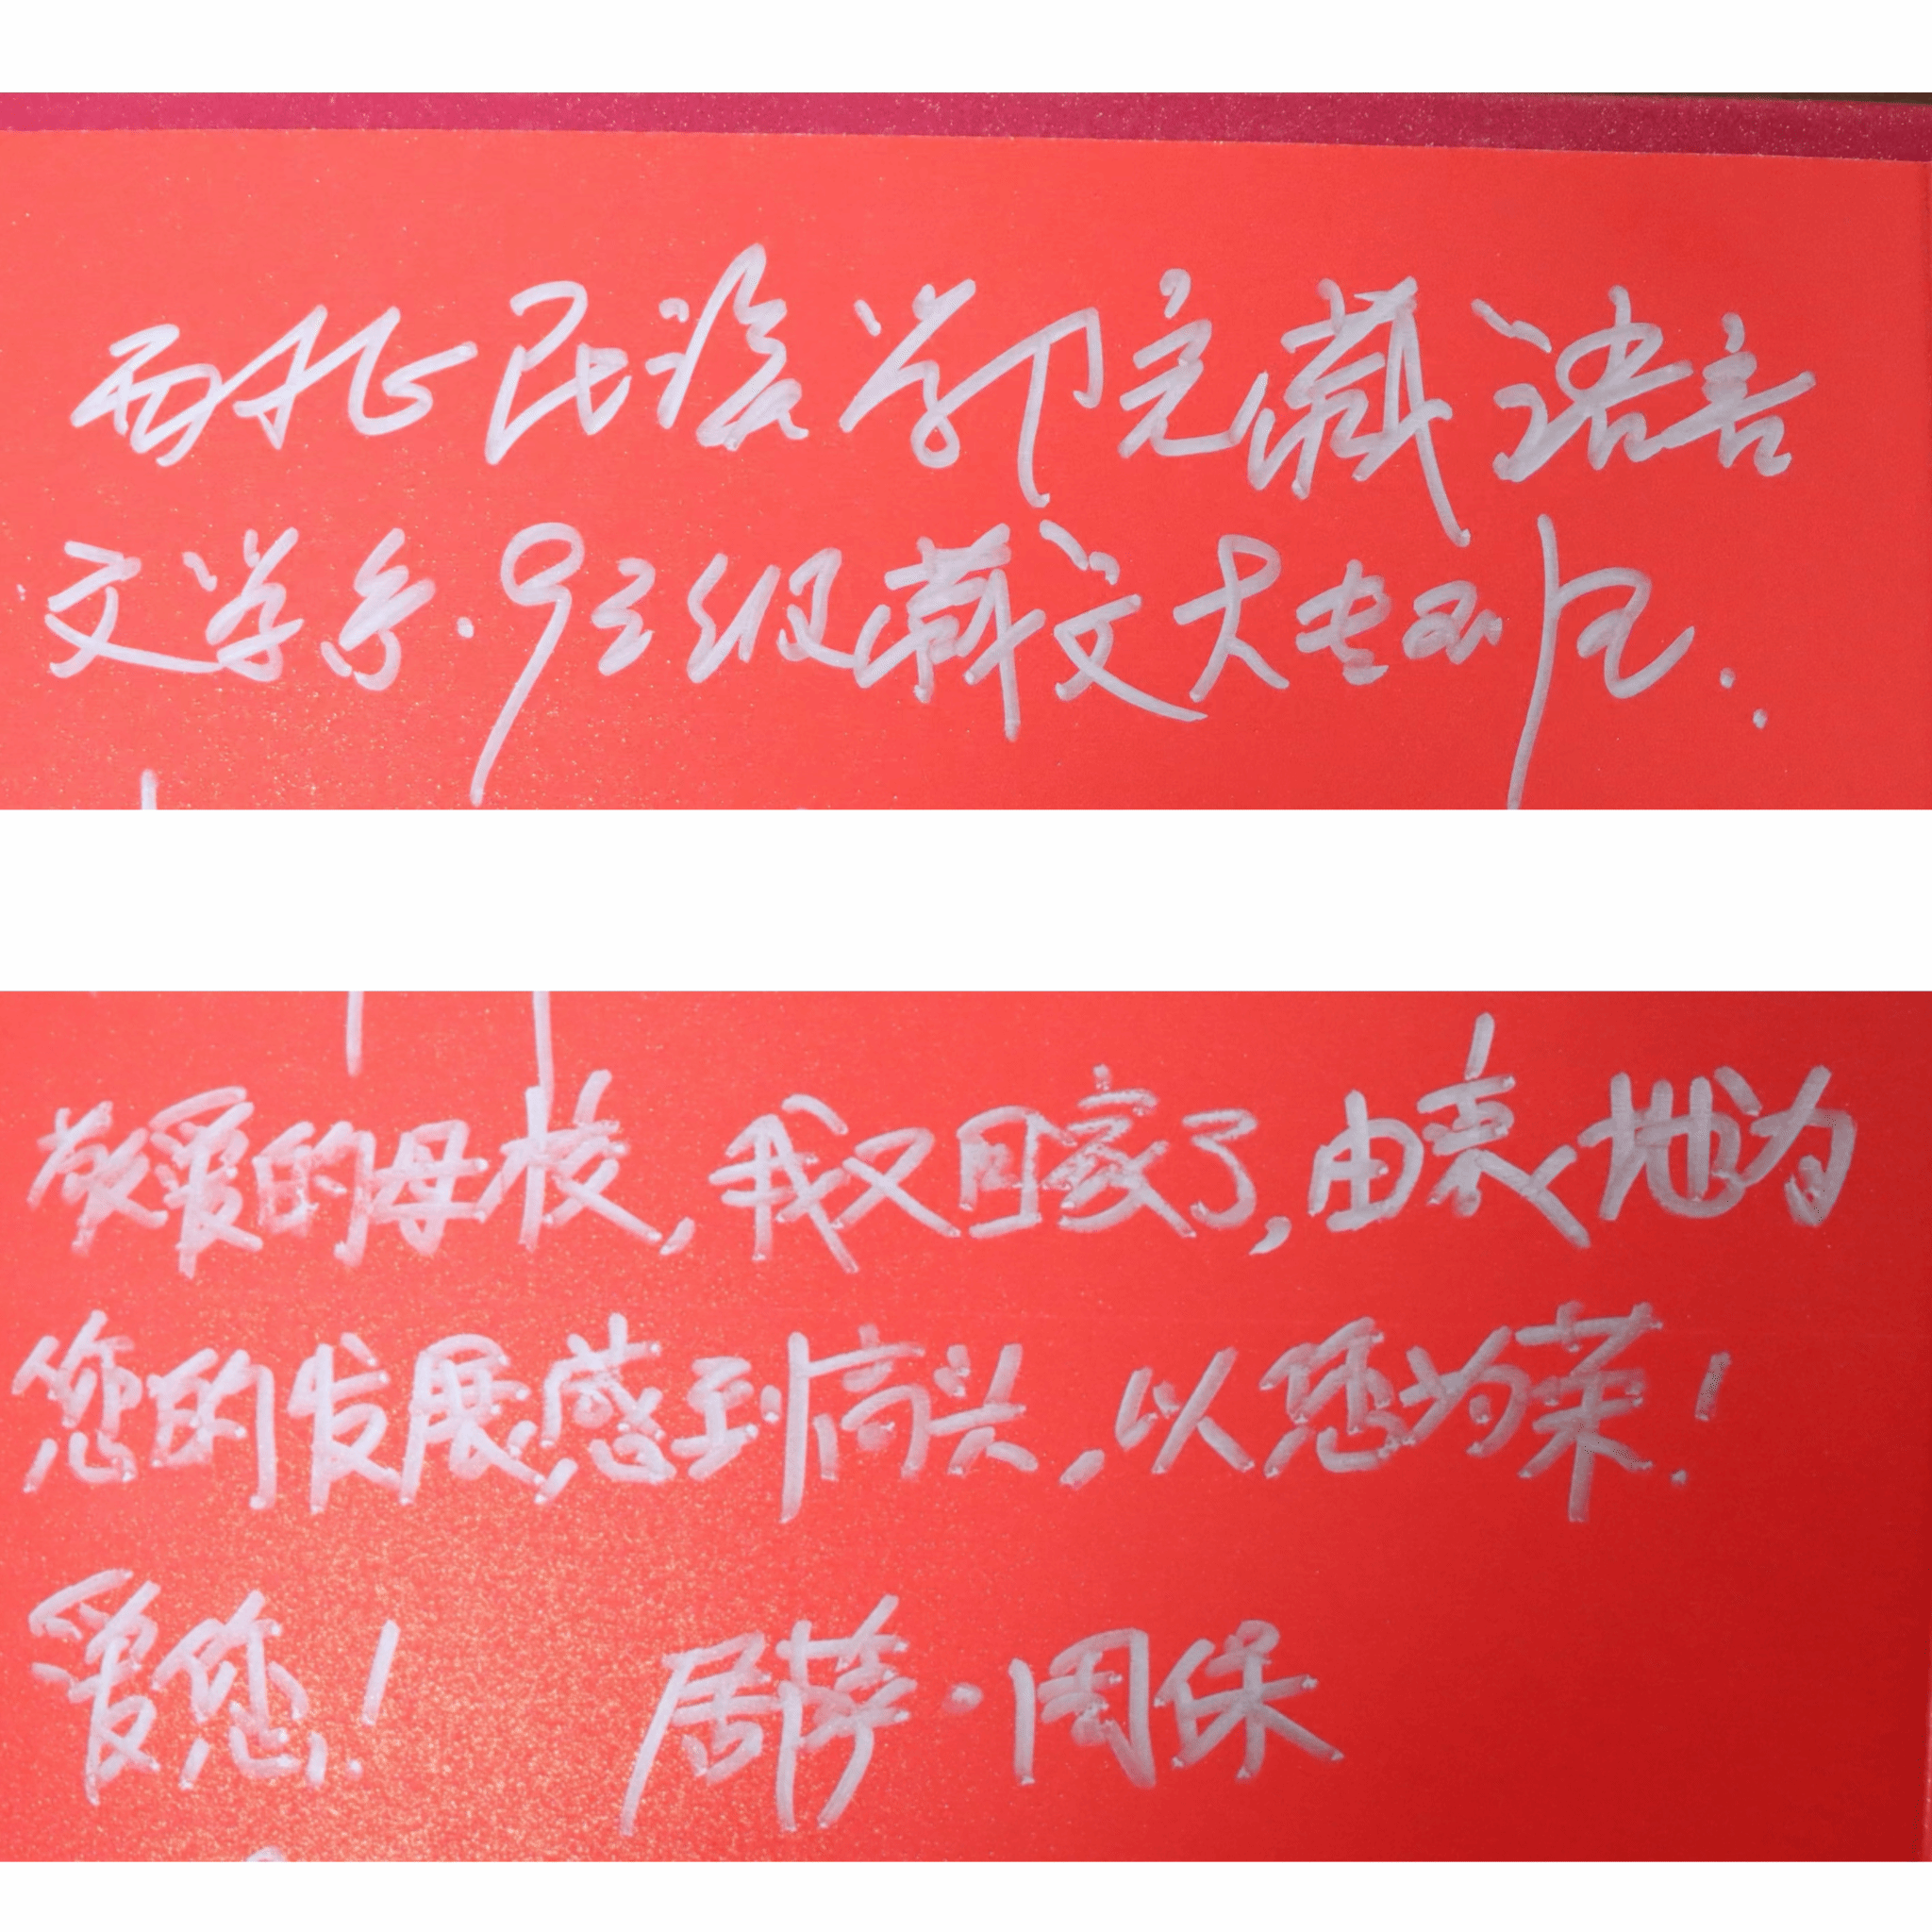 西北民族学院藏语言
文学系·93级藏文大专班.
敬爱的母校,我又回家了,由衷地为
您的发展感到高兴,以您为荣!
爱您! 居萨·周保